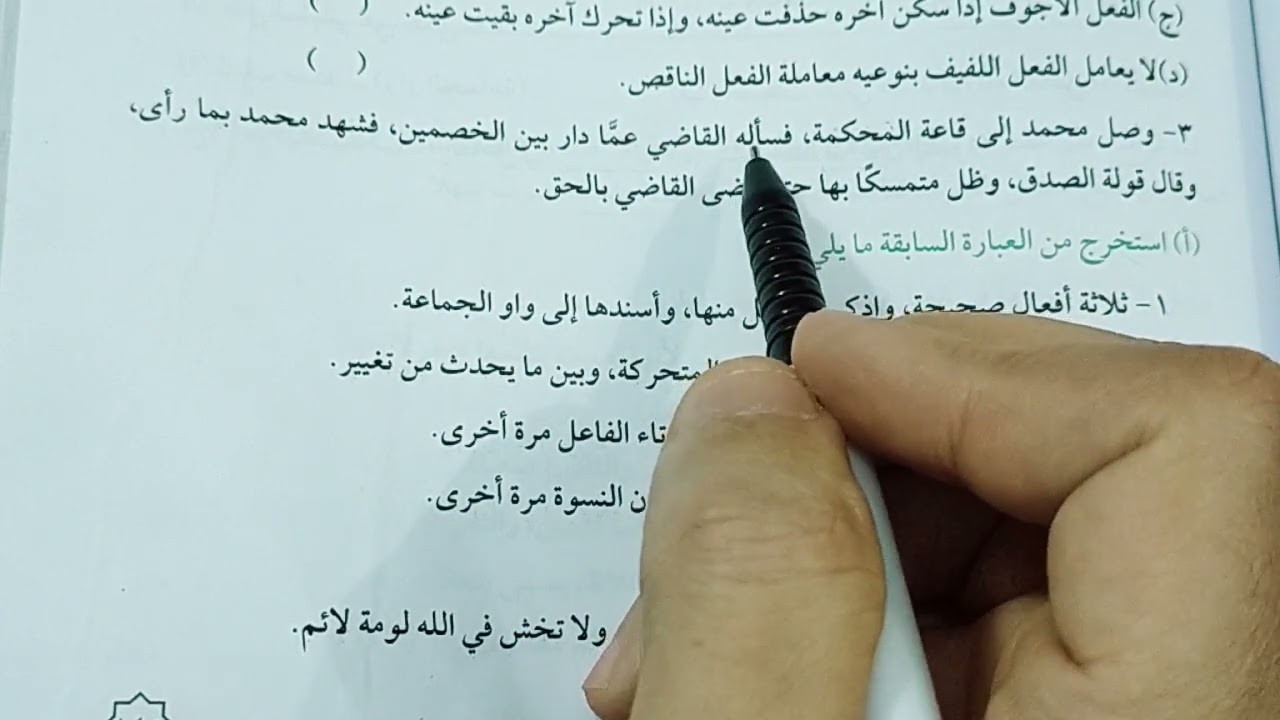 (ج) الفعل الأجوف إذا سكن آخره حذفت عينه، وإذا تحرك آخره بقيت عينه. ( )
(د) لا يعامل الفعل اللفيف بنوعيه معاملة الفعل الناقص. ( )
٣- وصل محمد إلى قاعة المحكمة، فسأله القاضي عمَّا دار بين الخصمين، فشهد محمد بما رأى،
وقال قولة الصدق، وظل متمسكًا بها القاضي بالحق.
(أ) استخرج من العبارة السابقة ما يلي
١- ثلاثة أفعال صحيحة، منها، وأسندها إلى واو الجماعة.
المتحركة، وبين ما يحدث من تغيير.
تاء الفاعل مرة أخرى.
النسوة مرة أخرى.
ولا تخش في الله لومة لائم.